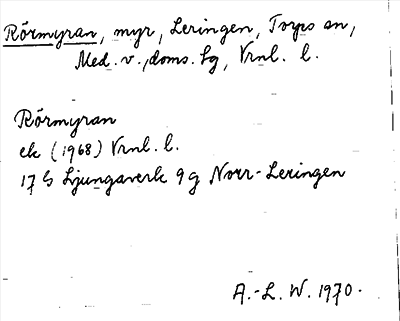 Rörmyran, myr, Leringen, Torps sn,
Med. v., doms. lg, Vrnl. l.
Rörmyran
ek (1968) Vrnl. l.
17 G Ljungaverk 9 g Norr-Leringen
A.-L. W. 1970.